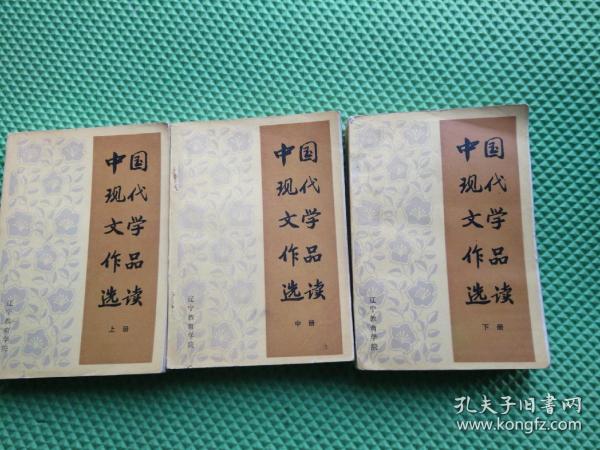 中国
现代
文学
作品
选读
上册
辽宁教育学院
中国
现代
文学
作品
选读
中册
辽宁教育学院
中国
现代
文学
作品
选读
下册
辽宁教育学院
孔夫子旧書网
www.kongfz.com